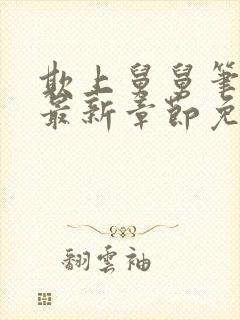 欺上舅舅笔
最新章节免
翻雲袖